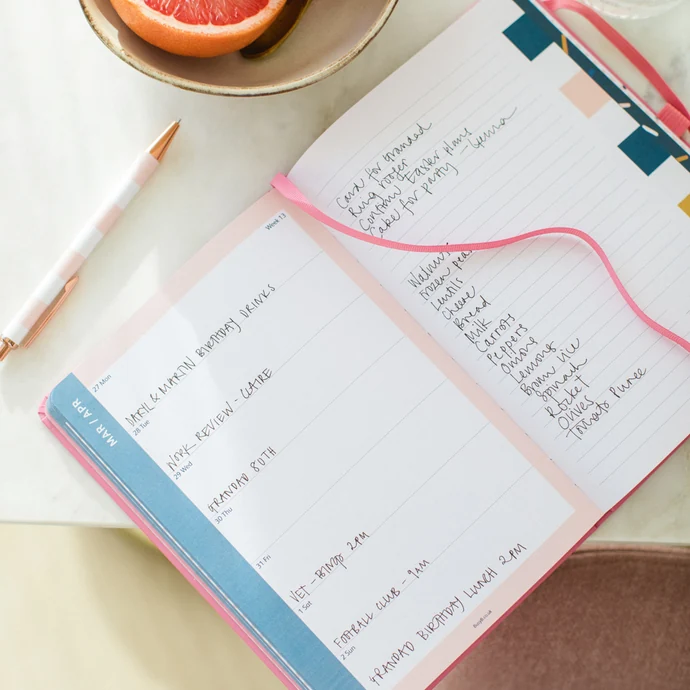 Week 13
MAR / APR
27 Mon
& MARTIN BIRTHDAY DRINKS
28 Tue
WORK REVIEW - CLAIRE
29 Wed
GRANDAD 80TH
30 Thu
31 Fri
VET - BINGO 2PM
1 Sat
FOOTBALL CLUB - 9AM
2 Sun
GRANDAD BIRTHDAY LUNCH 2PM
Card for Grandad
Ring roofer
Confirm Easter plans
Cake for party - Gemma
Walnu
Frozen pea
Lentils
Cheese
Bread
Milk
Carrots
Peppers
Onions
Lemons
Brown rice
Spinach
Rocket
Olives
Tomato Puree